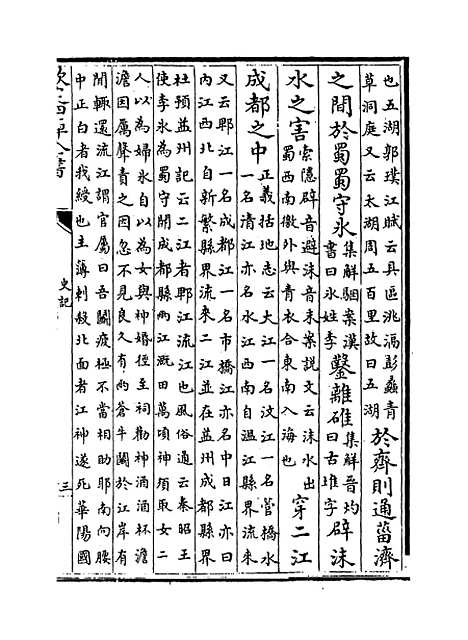 也五湖郭璞江賦云具區洮滆彭蠡青
草洞庭又云太湖周五百里故曰五湖
於齊則通菑濟
之間於蜀蜀守氷
集解駰案漢
書曰氷姓李
鑿離碓
集解晉灼
曰古堆字
辟沫
水之害
索隱辟音避沫音末案説文云沫水出
蜀西南徼外與青衣合東南入海也
穿二江
成都之中
正義括地志云大江一名汶江一名管橋水
一名清江亦名水江西南自温江縣界流來
又云郫江一名成都江一名市橋江亦名中日江亦曰
内江西北自新繁縣界流來二江並在益州成都縣界
杜預益州記云二江者郫江流江也風俗通云秦昭王
使李氷為蜀守開成都縣兩江溉田萬頃神須取女二
人以為婦氷自以為女與神婚徑至祠勸神酒酒杯澹
澹因厲聲責之因忽不見良久有兩蒼牛鬭於江岸有
間輒還流江謂官屬曰吾鬭疲極不當相助耶南向腰
中正白者我綬也主薄刺殺北面者江神遂死華陽國
史記
三